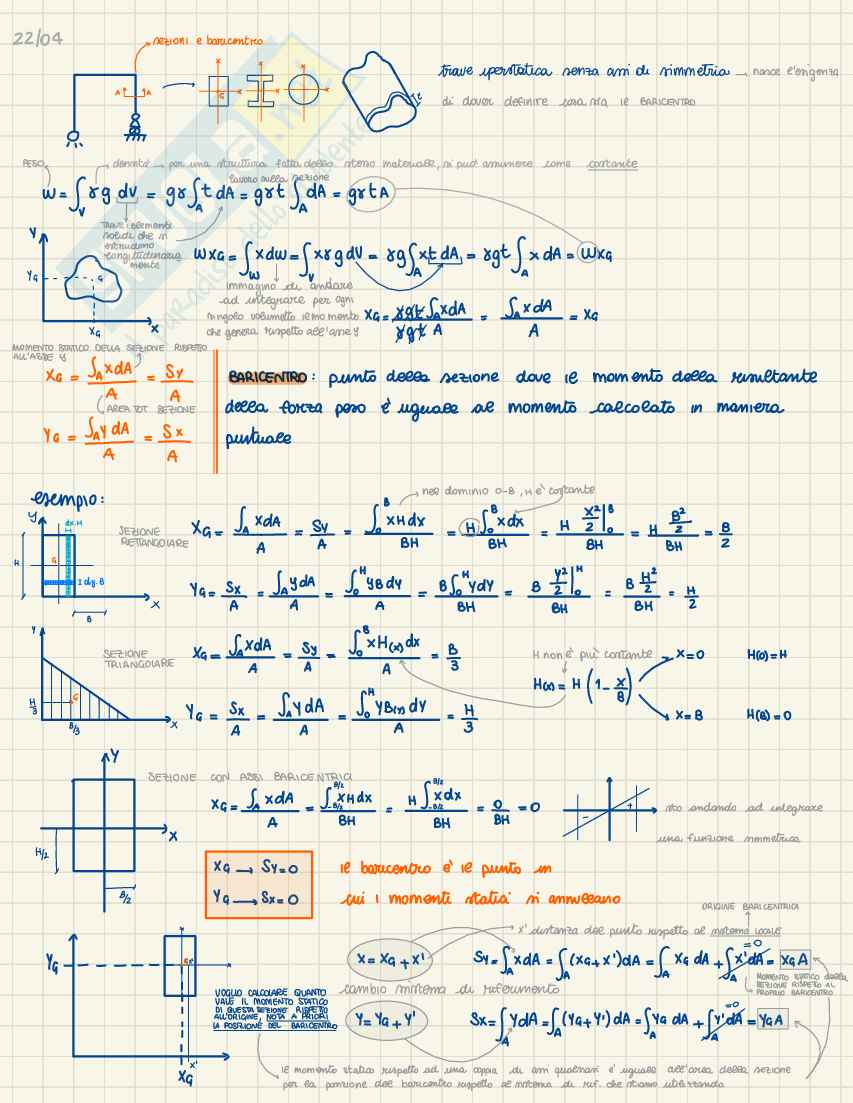 22/04
sezioni e baricentro
A A
x x x
G
trave iperstatica senza assi di simmetria → nasce l'esigenza
di dover definire cosa sia il BARICENTRO
PESO
densità → per una struttura fatta dello stesso materiale, si può assumere come costante
lavoro sulla sezione
W = ∫V γg dV = gγ ∫A t dA = gγt ∫A dA = gγtA
TRAVE: elemento solido che si estrudono longitudinalmente
Y
YG
G
XG
X
WXG = ∫W x dw = ∫V xγg dV = γg ∫A x t dA = γgt ∫A x dA = WXG
immagino di andare
ad integrare per ogni
singolo volumetto il momento
che genera rispetto all'asse Y
XG = γgt ∫A x dA / γgt A = ∫A x dA / A = XG
MOMENTO STATICO DELLA SEZIONE RISPETTO
ALL'ASSE Y
XG = ∫A x dA / A = Sy / A
AREA TOT SEZIONE
YG = ∫A y dA / A = Sx / A
BARICENTRO: punto della sezione dove il momento della risultante
della forza peso è uguale al momento calcolato in maniera
puntuale
esempio:
nel dominio 0-B, H è costante
Y
dx·H
H
G
I dy·B
B
X
SEZIONE
RETTANGOLARE
XG = ∫A x dA / A = Sy / A = ∫0^B x H dx / BH = H ∫0^B x dx / BH = H x²/2 |0^B / BH = H B²/2 / BH = B/2
YG = Sx / A = ∫A y dA / A = ∫0^H y B dy / A = B ∫0^H y dy / BH = B y²/2 |0^H / BH = B H²/2 / BH = H/2
Y
H/3
G
B/3
X
SEZIONE
TRIANGOLARE
XG = ∫A x dA / A = Sy / A = ∫0^B x H(x) dx / A = B/3
H non è più costante
H(x) = H (1 - x/B)
x=0 H(0)=H
x=B H(B)=0
YG = Sx / A = ∫A y dA / A = ∫0^H y B(y) dy / A = H/3
Y
X
H/2
B/2
SEZIONE CON ASSI BARICENTRICI
XG = ∫A x dA / A = ∫-B/2^B/2 x H dx / BH = H ∫-B/2^B/2 x dx / BH = 0 / BH = 0
- +
sto andando ad integrare
una funzione simmetrica
XG → Sy=0
YG → Sx=0
il baricentro è il punto in
cui i momenti statici si annullano
ORIGINE BARICENTRICI
x' distanza del punto rispetto al sistema locale
YG
G x'
x'
XG
VOGLIO CALCOLARE QUANTO
VALE IL MOMENTO STATICO
DI QUESTA SEZIONE RISPETTO
ALL'ORIGINE, NOTA A PRIORI
LA POSIZIONE DEL BARICENTRO
X = XG + x'
Sy = ∫A x dA = ∫A (XG + x') dA = ∫A XG dA + ∫A x' dA = XG A
=0
cambio sistema di riferimento
MOMENTO STATICO della
SEZIONE RISPETTO AL
PROPRIO BARICENTRO
Y = YG + Y'
Sx = ∫A Y dA = ∫A (YG + Y') dA = ∫A YG dA + ∫A Y' dA = YG A
=0
il momento statico rispetto ad una coppia di assi qualsiasi è uguale all'area della sezione
per la posizione del baricentro rispetto al sistema di rif. che stiamo utilizzando